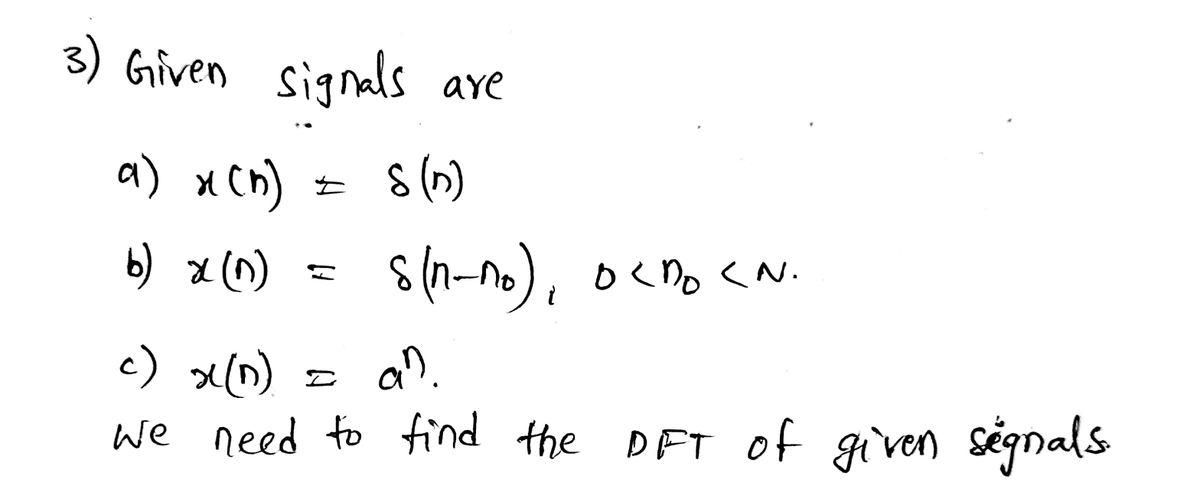 3) Given signals are
a) x(n) = δ(n)
b) x(n) = δ(n-n₀), 0<n₀<N.
c) x(n) = aⁿ.
We need to find the DFT of given signals.